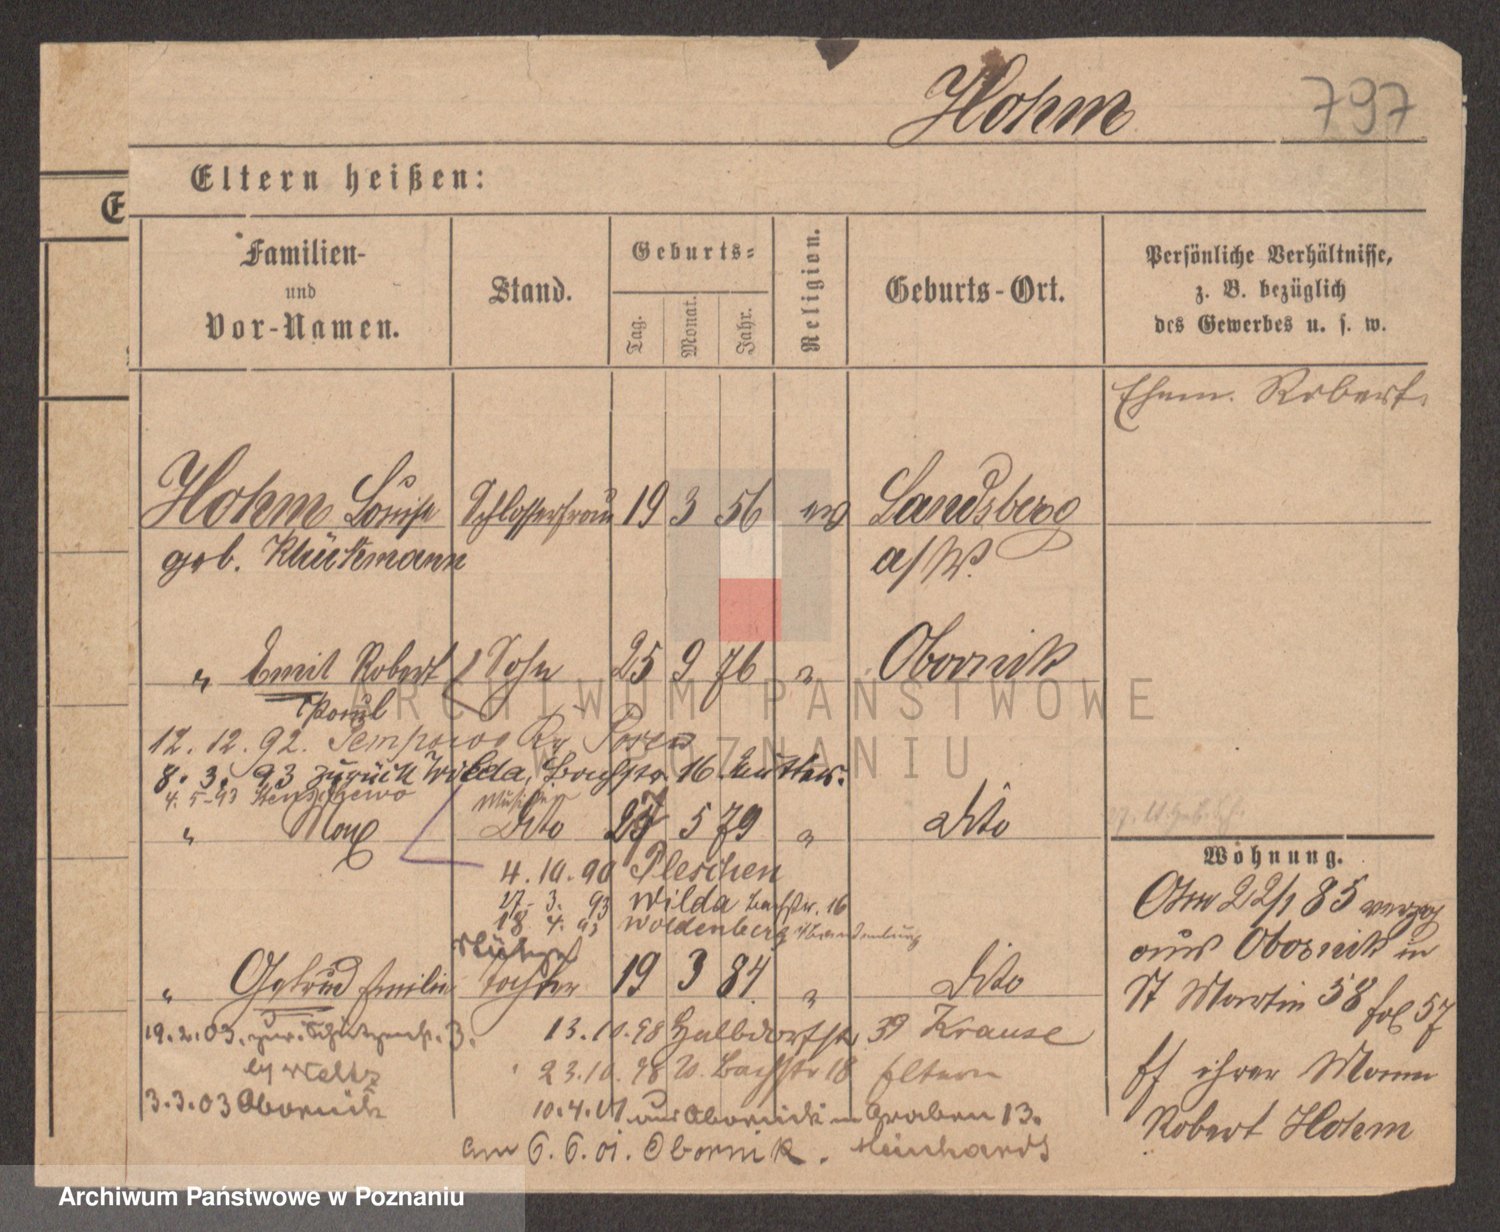 Hohm
797
Eltern heißen:
E
Familien-
und
Vor-Namen.
Stand.
Geburts-
Tag.
Monat.
Jahr.
Religion.
Geburts-Ort.
Persönliche Verhältnisse,
z. B. bezüglich
des Gewerbes u. s. w.
Ehem. Robert
Hohm Louise Schlosserfrau 19 3 56 ev Landsberg
geb. Klückmann a/W.
" Emil Robert Sohn 25 9 76 " Obornik
Paul
12. 12. 92. Posen
8. 3. 93 zurück Wilda, Bachstr. 16 Mutter.
4. 5. 93
" Max Dito 27 5 79 " Dito
4. 10. 90 Pleschen
27. 3. 93 Wilda Bachstr. 16
18 4. 93 Woldenberg Brandenburg
" Gertrud Emilie Tochter 19 3 84. " Dito
19. 2. 03. zur.
13. 10. 98 Halbdorfstr. 39 Krause
23. 10. 98 W. Bachstr 18 Eltern
3. 3. 03 Obornik
10. 4. 01 aus Obornik Graben 13.
am 6. 6. 01. Obornik. Reinhardt
Wohnung.
22/1 85 verzog
aus Obornik in
St Martin 58 fol 57
ihrer Mann
Robert Hohm
ARCHIWUM PAŃSTWOWE
W POZNANIU
Archiwum Państwowe w Poznaniu